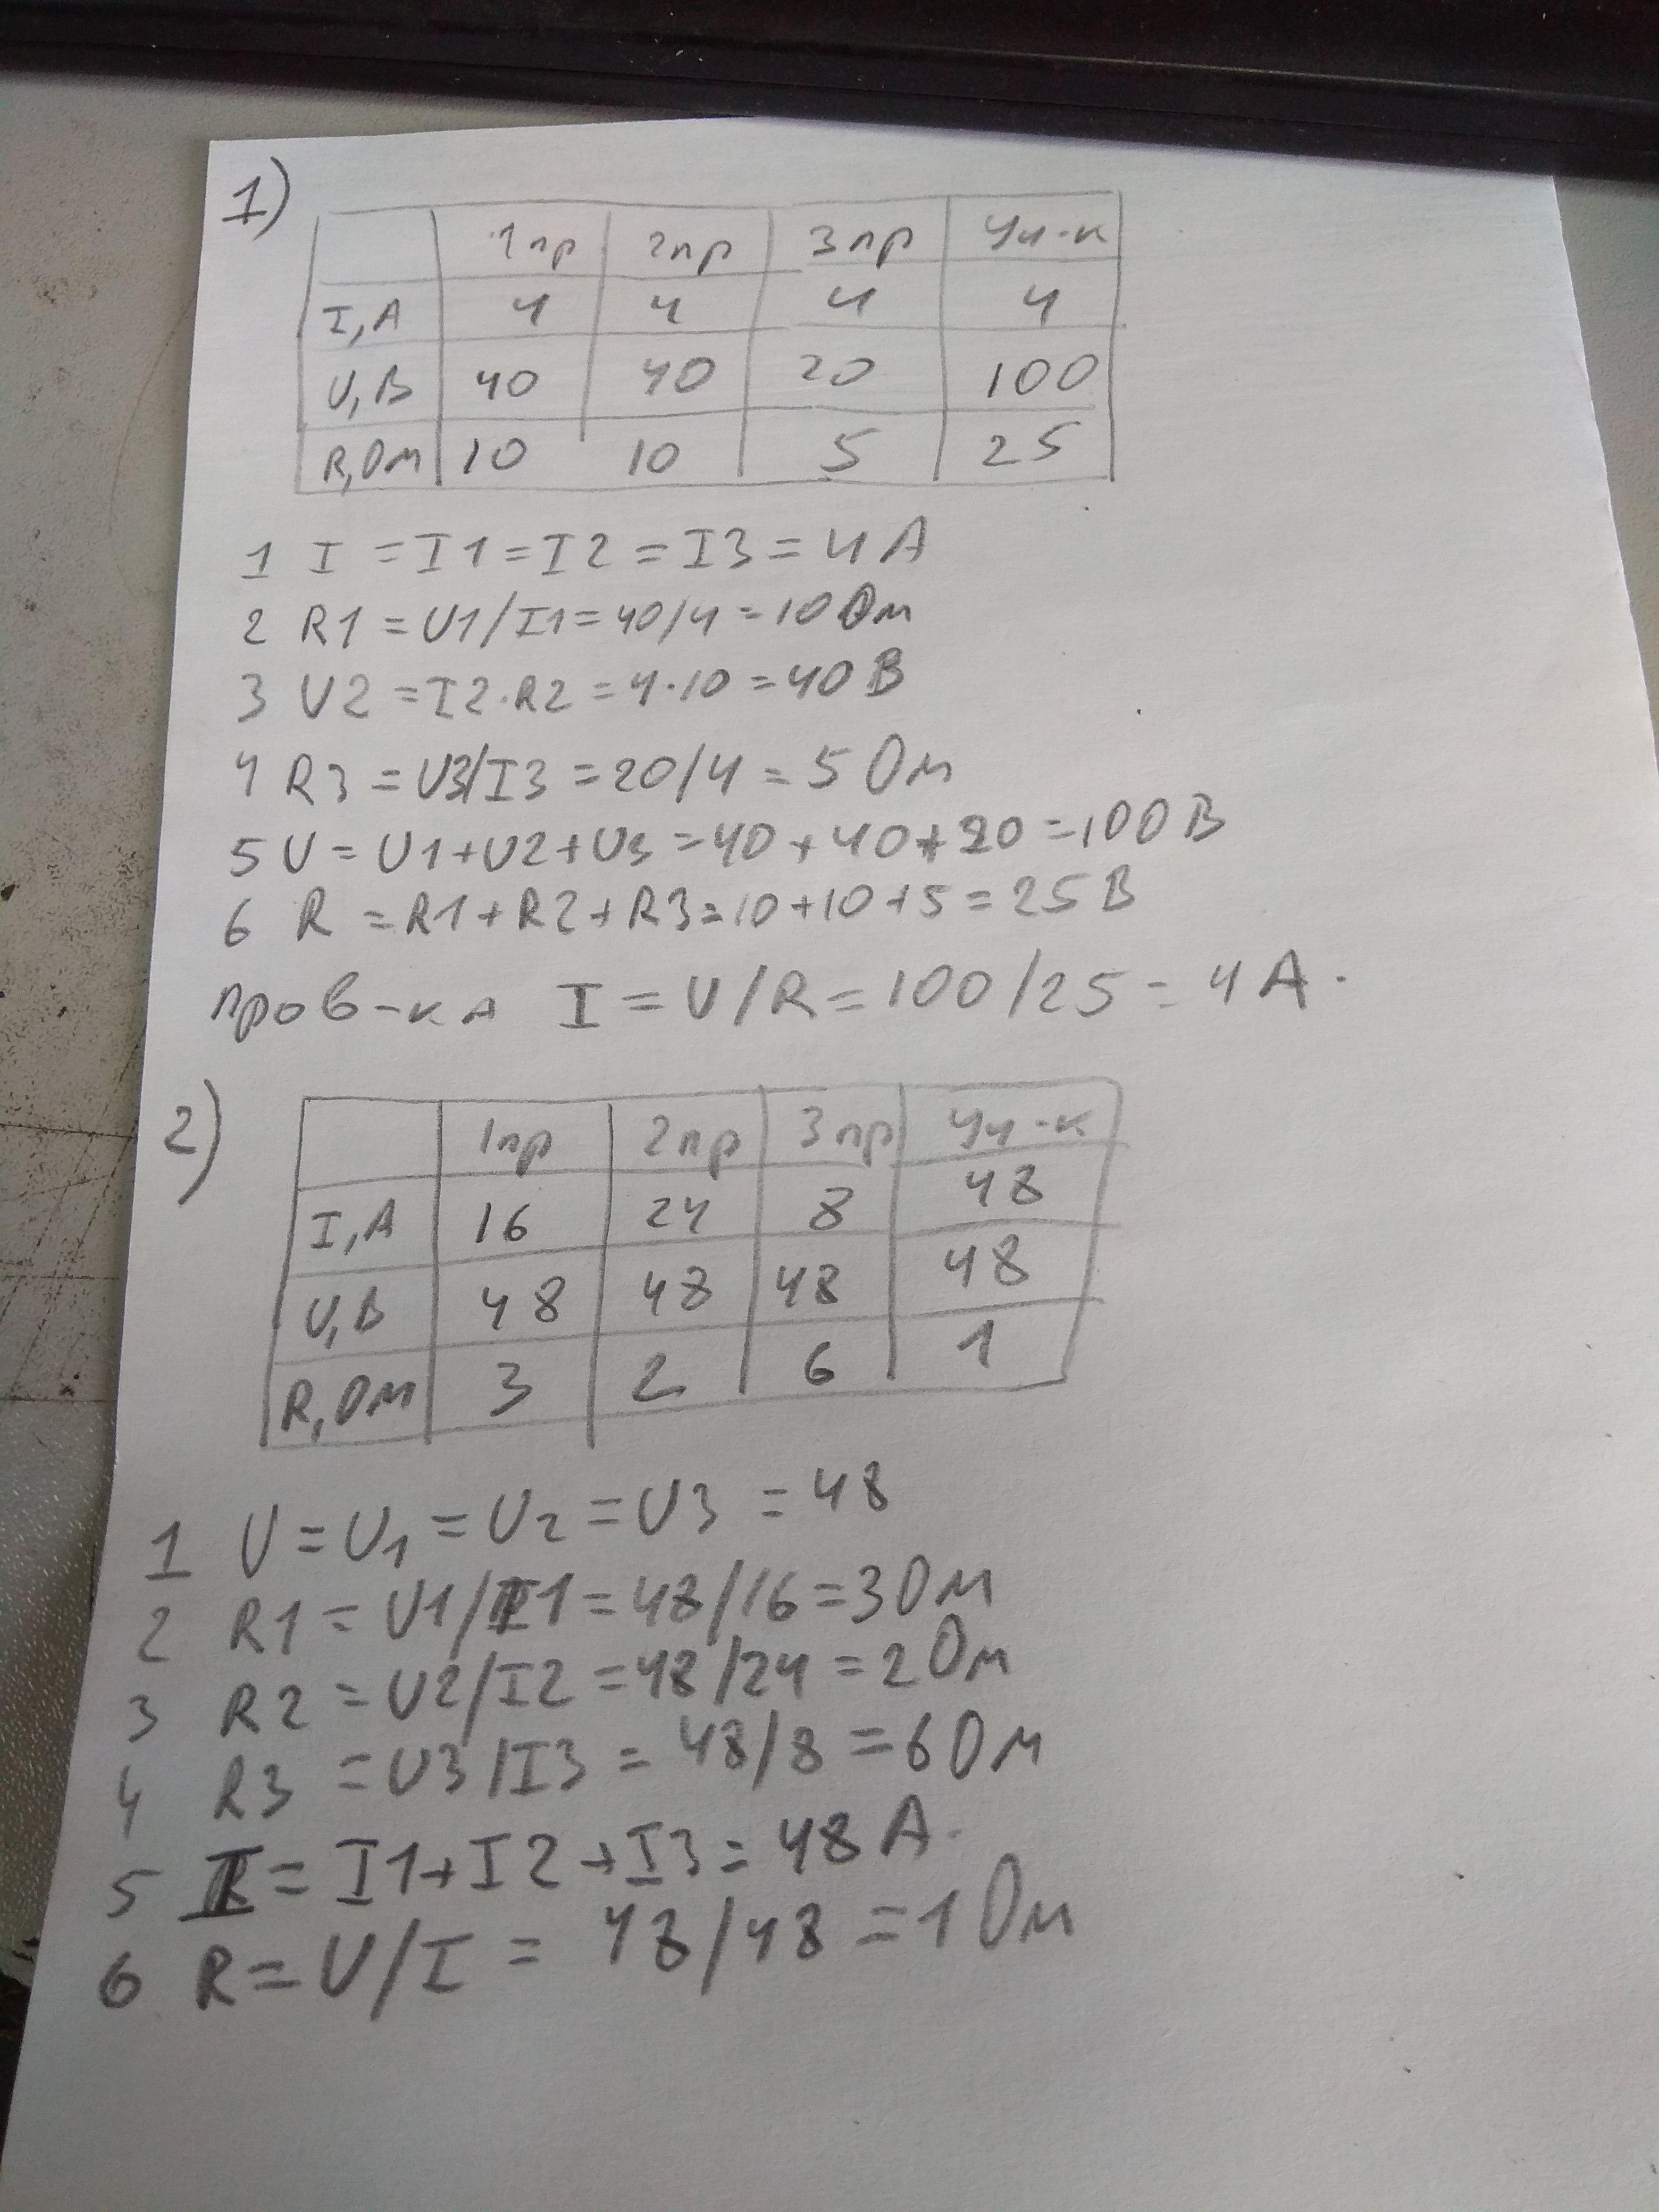 1)
1пр 2пр 3пр Уч-к
I,A 4 4 4 4
U,В 40 40 20 100
R,Ом 10 10 5 25
1 I = I1 = I2 = I3 = 4 A
2 R1 = U1/I1 = 40/4 = 10 Ом
3 U2 = I2·R2 = 4·10 = 40 В
4 R3 = U3/I3 = 20/4 = 5 Ом
5 U = U1+U2+U3 = 40+40+20 = 100 В
6 R = R1+R2+R3 = 10+10+5 = 25 В
пров-ка I = U/R = 100/25 = 4 A.
2)
1пр 2пр 3пр Уч-к
I,A 16 24 8 48
U,В 48 48 48 48
R,Ом 3 2 6 1
1 U = U1 = U2 = U3 = 48
2 R1 = U1/I1 = 48/16 = 3 Ом
3 R2 = U2/I2 = 48/24 = 2 Ом
4 R3 = U3/I3 = 48/8 = 6 Ом
5 I = I1+I2+I3 = 48 A.
6 R = U/I = 48/48 = 1 Ом